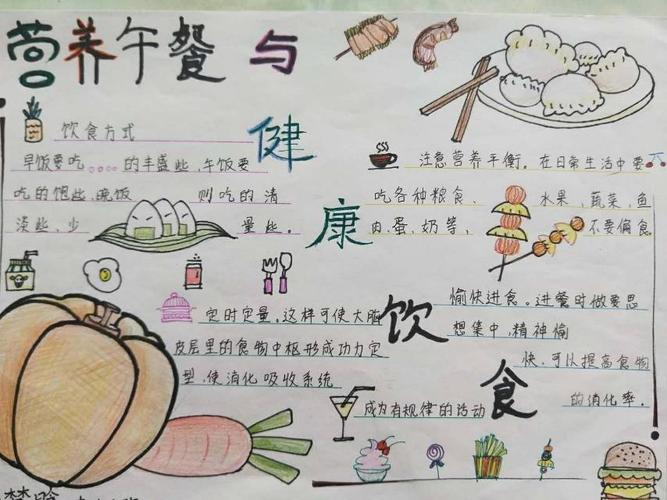 营养午餐与
健康
饮食
饮食方式
早饭要吃的丰盛些,午饭要
吃的饱些,晚饭则吃的清
淡些,少量些。
定时定量。这样可使大脑
皮层里的食物中枢形成动力定
型,使消化吸收系统
成为有规律的活动
注意营养平衡。在日常生活中要
吃各种粮食、水果,蔬菜,鱼
肉、蛋、奶等、不要偏食
愉快进食。进餐时做要思
想集中,精神愉
快,可以提高食物
的消化率。